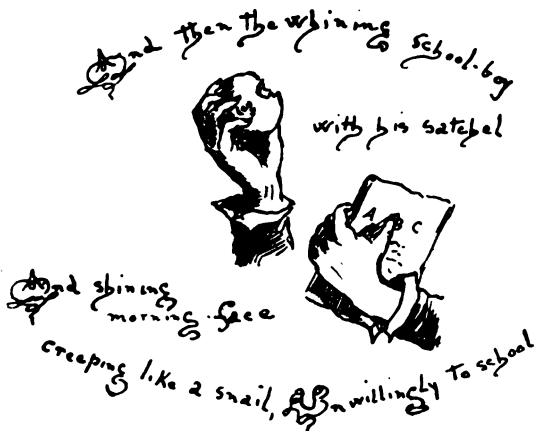 And then the whining school-boy
with his satchel
A B C
And shining
morning-face
creeping like a snail, Unwillingly to school